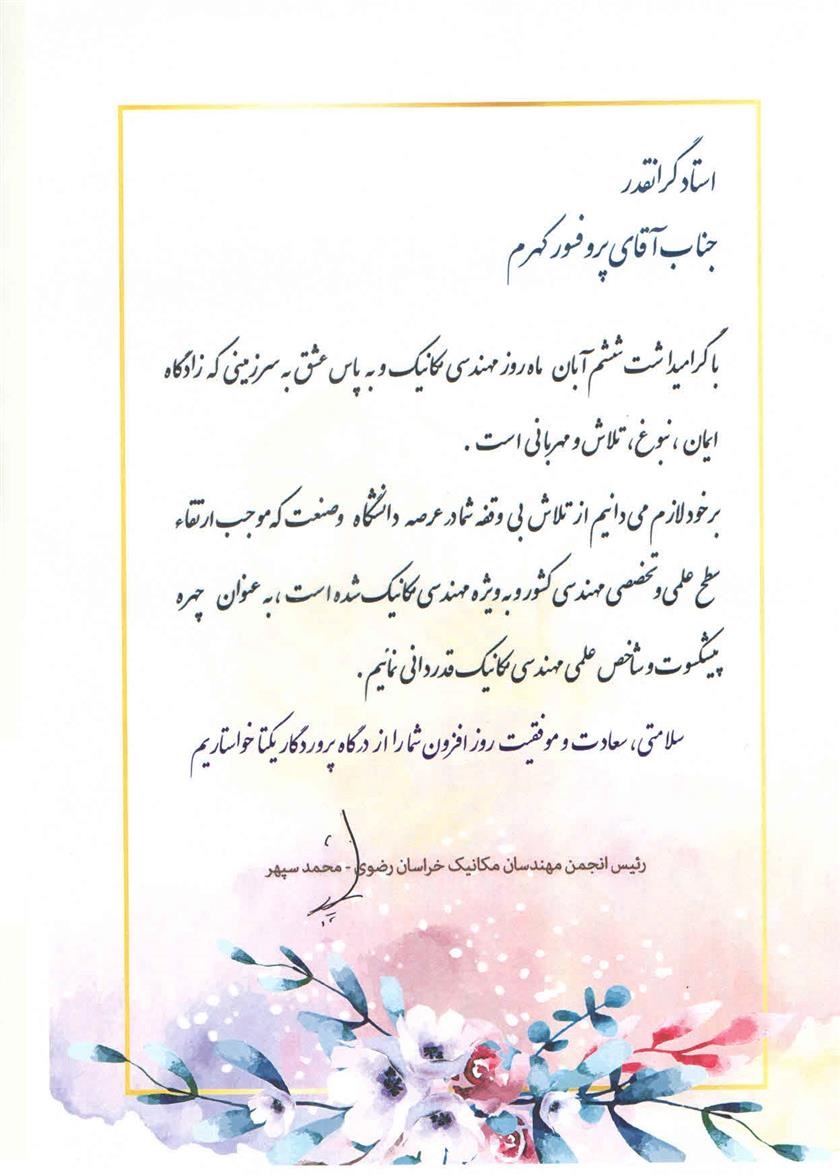 استاد گرانقدر
جناب آقای پروفسور کهرم
با گرامیداشت ششم آبان ماه روز مهندسی مکانیک و به پاس عشق به سرزمینی که زادگاه
ایمان ، نبوغ، تلاش و مهربانی است .
برخود لازم می دانیم از تلاش بی وقفه شما در عرصه دانشگاه وصنعت که موجب ارتقاء
سطح علمی و تخصصی مهندسی کشور و به ویژه مهندسی مکانیک شده است ، به عنوان چهره
پیشکسوت و شاخص علمی مهندسی مکانیک قدردانی نمائیم .
سلامتی، سعادت و موفقیت روز افزون شما را از درگاه پروردگار یکتا خواستاریم
رئیس انجمن مهندسان مکانیک خراسان رضوی - محمد سپهر